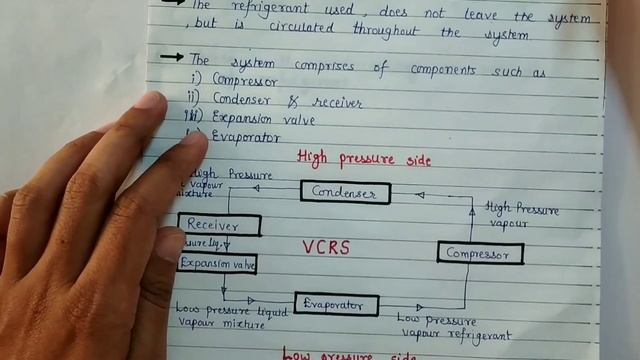 → The refrigerant used, does not leave the system
, but is circulated throughout the system
→ The system comprises of components such as
i) Compressor
ii) Condenser & receiver
iii) Expansion valve
Evaporator
High pressure side
High Pressure
vapour
mixture
Condenser
High Pressure
vapour
Receiver
VCRS
Compressor
Expansion valve
Evaporator
Low pressure liquid
vapour mixture
Low pressure
vapour refrigerant
Low pressure side